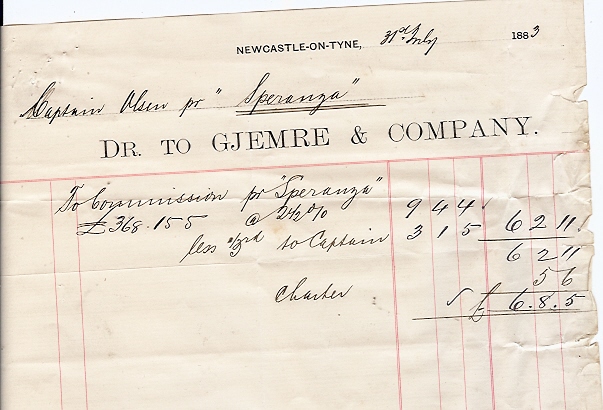 NEWCASTLE-ON-TYNE, 31st July 1883
Captain Olsen pr "Speranza"
DR. TO GJEMRE & COMPANY.
To Commission pr "Speranza"
£368.15 5 @ 2½% 9 4 4
less ⅓rd to Captain 3 1 5 6 2 11
6 2 11
Charter 5 6
✓ £ 6.8.5